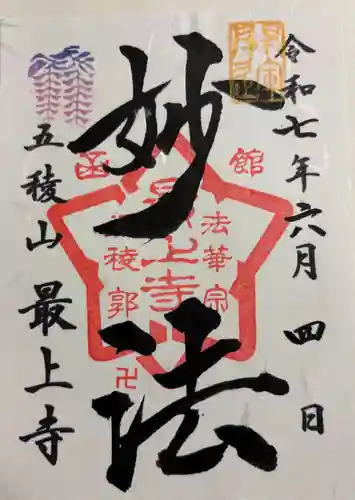 令和七年六月四日
妙法
五稜山 最上寺
函館
法華宗
最上寺
五稜郭
卍